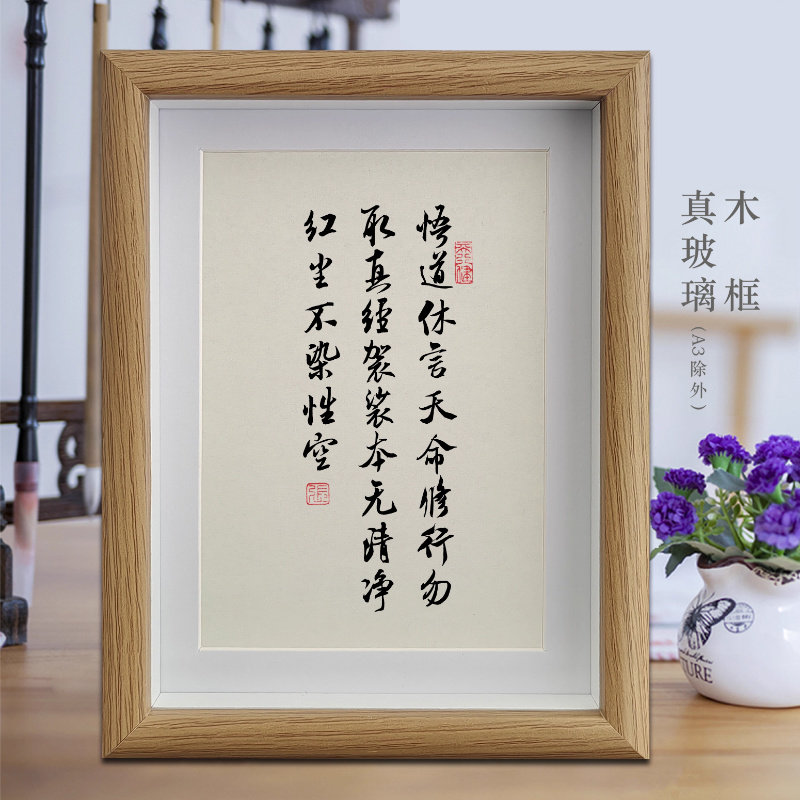 悟道休言天命修行勿
取真經袈裟本无清净
红尘不染性空
張
木框
真玻璃(A3除外)
TURE